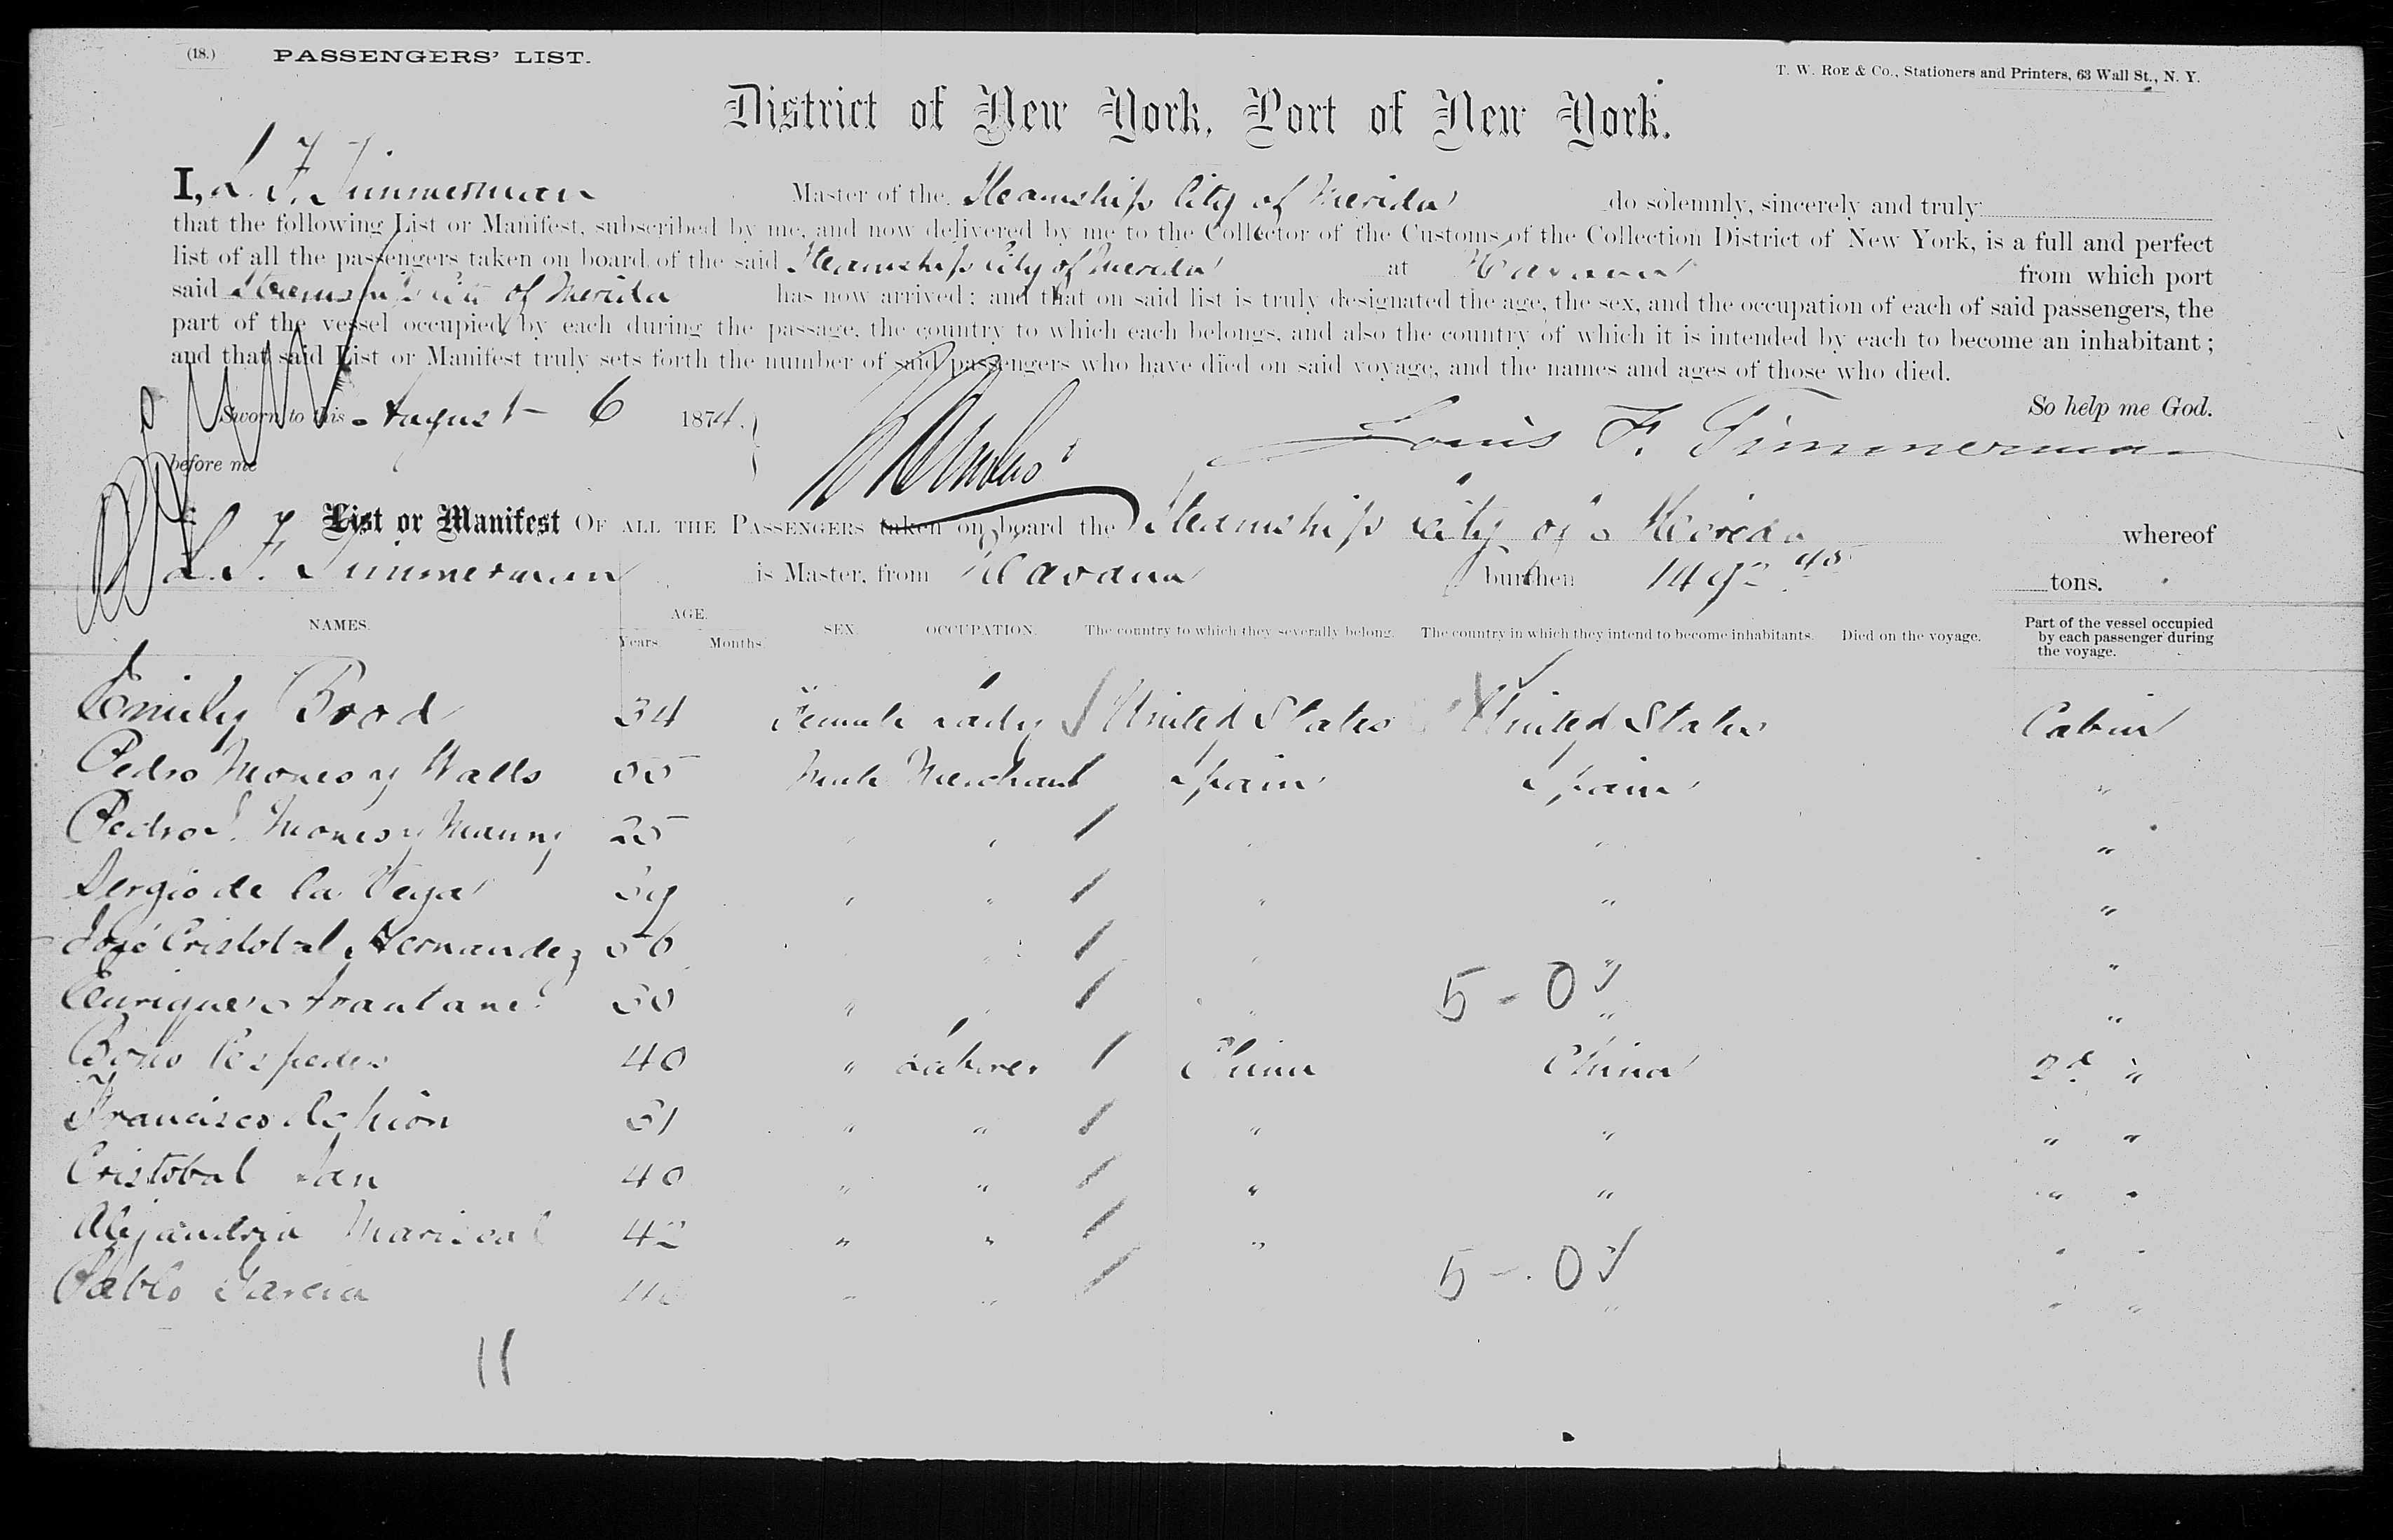 (18.) PASSENGERS' LIST.
T. W. ROE & CO., Stationers and Printers, 63 Wall St., N. Y.
District of New York, Port of New York.
I, L. F. Timmerman Master of the Steamship City of Merida do solemnly, sincerely and truly
that the following List or Manifest, subscribed by me, and now delivered by me to the Collector of the Customs of the Collection District of New York, is a full and perfect
list of all the passengers taken on board of the said Steamship City of Merida at Havana from which port
said Steamship City of Merida has now arrived; and that on said list is truly designated the age, the sex, and the occupation of each of said passengers, the
part of the vessel occupied by each during the passage, the country to which each belongs, and also the country of which it is intended by each to become an inhabitant;
and that said List or Manifest truly sets forth the number of said passengers who have died on said voyage, and the names and ages of those who died.
So help me God.
Sworn to this August 6 1874.
before me
Louis F. Timmerman
List or Manifest OF ALL THE PASSENGERS taken on board the Steamship City of Merida whereof
L. F. Timmerman is Master, from Havana burthen tons.
NAMES. AGE. SEX. OCCUPATION. The country to which they severally belong. The country in which they intend to become inhabitants. Died on the voyage. Part of the vessel occupied by each passenger during the voyage.
Years. Months.
Emily Bood 34 Female Lady United States United States Cabin
Pedro Mones y Walls 55 Male Merchant Spain Spain "
Pedro Mones y 25 " " " " "
Sergio de la Vega 39 " " " " "
José Cristobal Hernandez 56 " " " "
Enrique 30 " " " " "
5 - 0
Cespedes 40 " Laborer China China 2d "
Francisco 31 " " " " " "
Cristobal 40 " " " " " "
Alejandria Mariscal 42 " " " " "
5 - 0
Pablo Garcia " " " " "
11